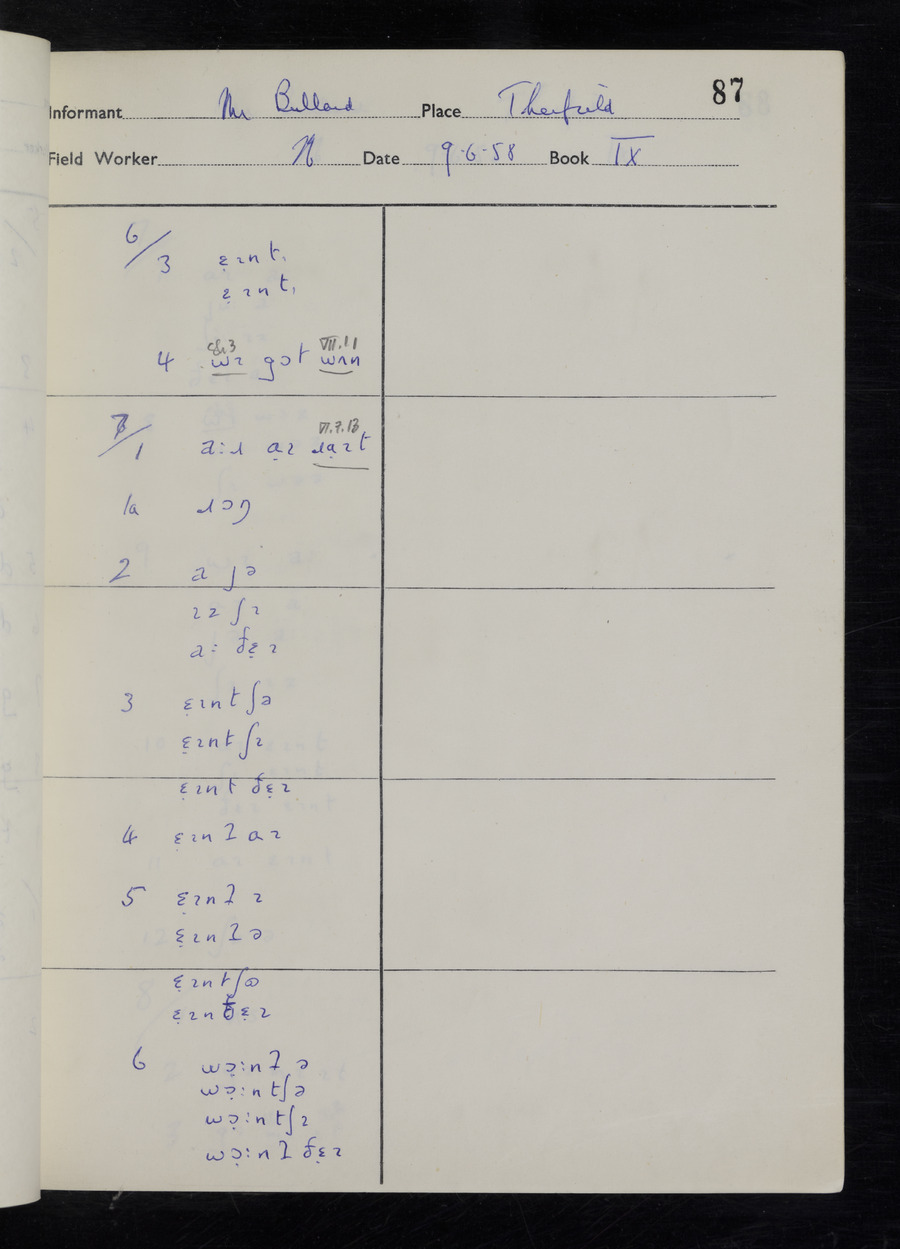 87
Informant Mr Bullard Place Therfield
Field Worker N Date 9.6.58 Book IX
6/3 ɛ̣ɪnt,
ɛɪnt,
VIII.3 VII.11
4 wɪ gɔt wʌn
VI.7.13
7/1 a:ɹ aɪ ɹạɪt
1a ɹɔŋ
2 a ʃə
ɪz ʃɪ
a: ðɛ̣ɪ
3 ɛ̣ɪnt ʃə
ɛ̣ɪnt ʃɪ
ɛ̣ɪnt ðɛ̣ɪ
4 ɛɪnʔ aɪ
5 ɛ̣ɪnʔ ɪ
ɛ̣ɪnʔ ə
ɛ̣ɪntʃə
ɛ̣ɪn ðɛ̣ɪ
6 wɔ̣:nʔ ə
wɔ̣:ntʃə
wɔ̣:ntʃɪ
wɔ̣:nʔ ðɛ̣ɪ